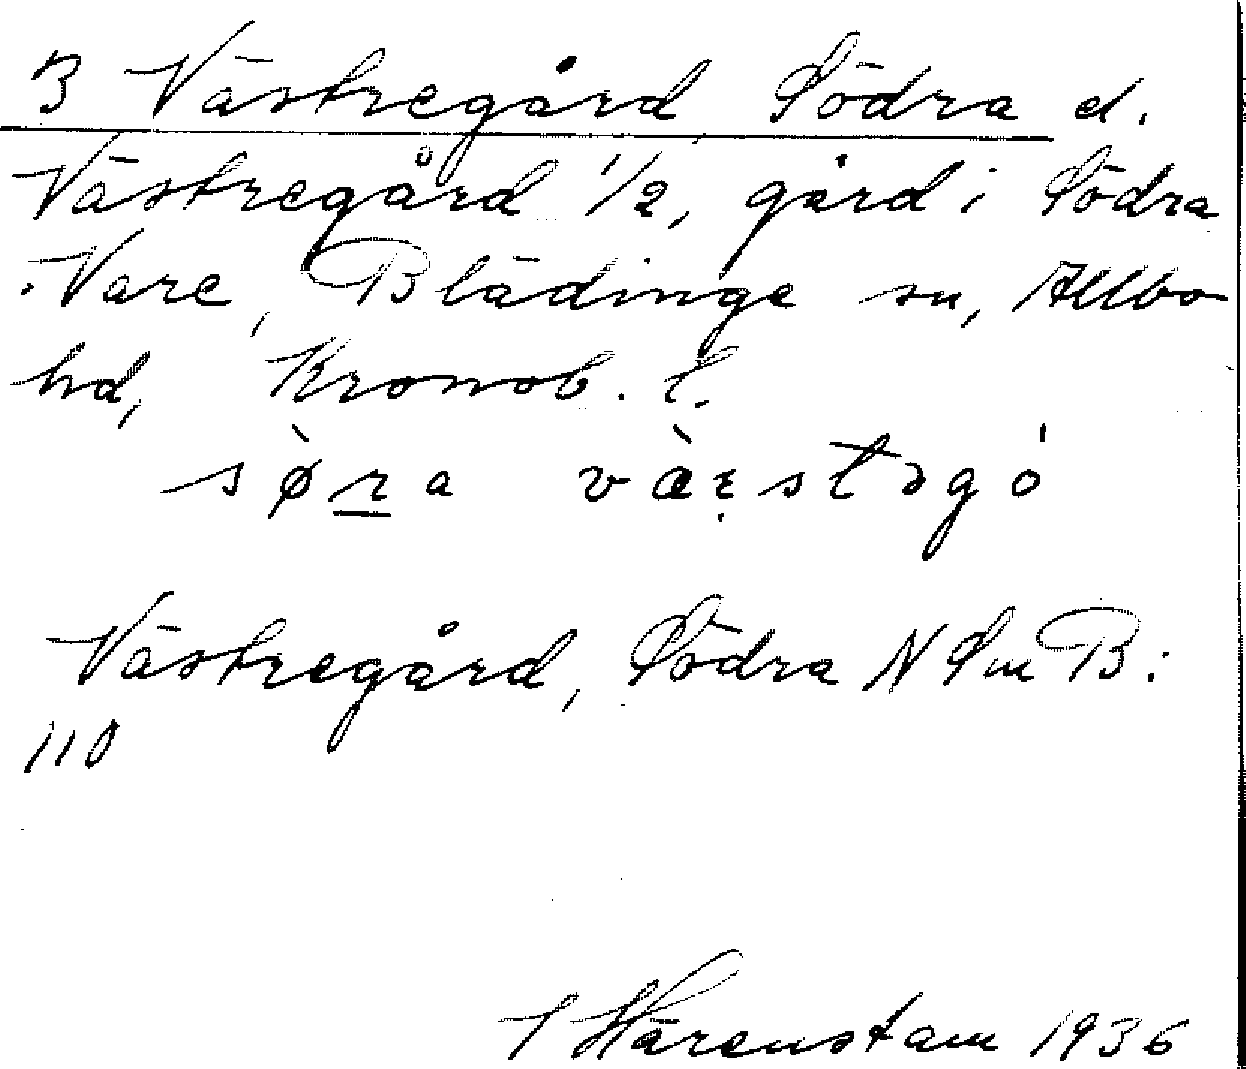 B Västregård Södra el.
Västregård 1/2, gård i Södra
Vare, Blädinge sn, Allbo
hd, Kronob. l.
sø̀ra væ̀stəgó
Västregård, Södra N Sm B:
110
I Härenstam 1936